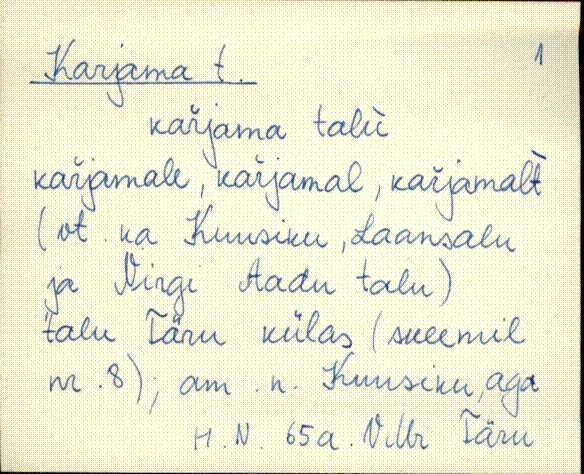 Karjama t. 1
kar̆jama talu̬
kar̆jamale, kar̆jamal, kar̆jamalt̀
(vt. ka Kuusiku, Laansalu
ja Nirgi Aadu talu)
talu Täru külas (skeemil
nr. 8), am. n. Kuusiku, aga
H. N. 65a. VMr Täru